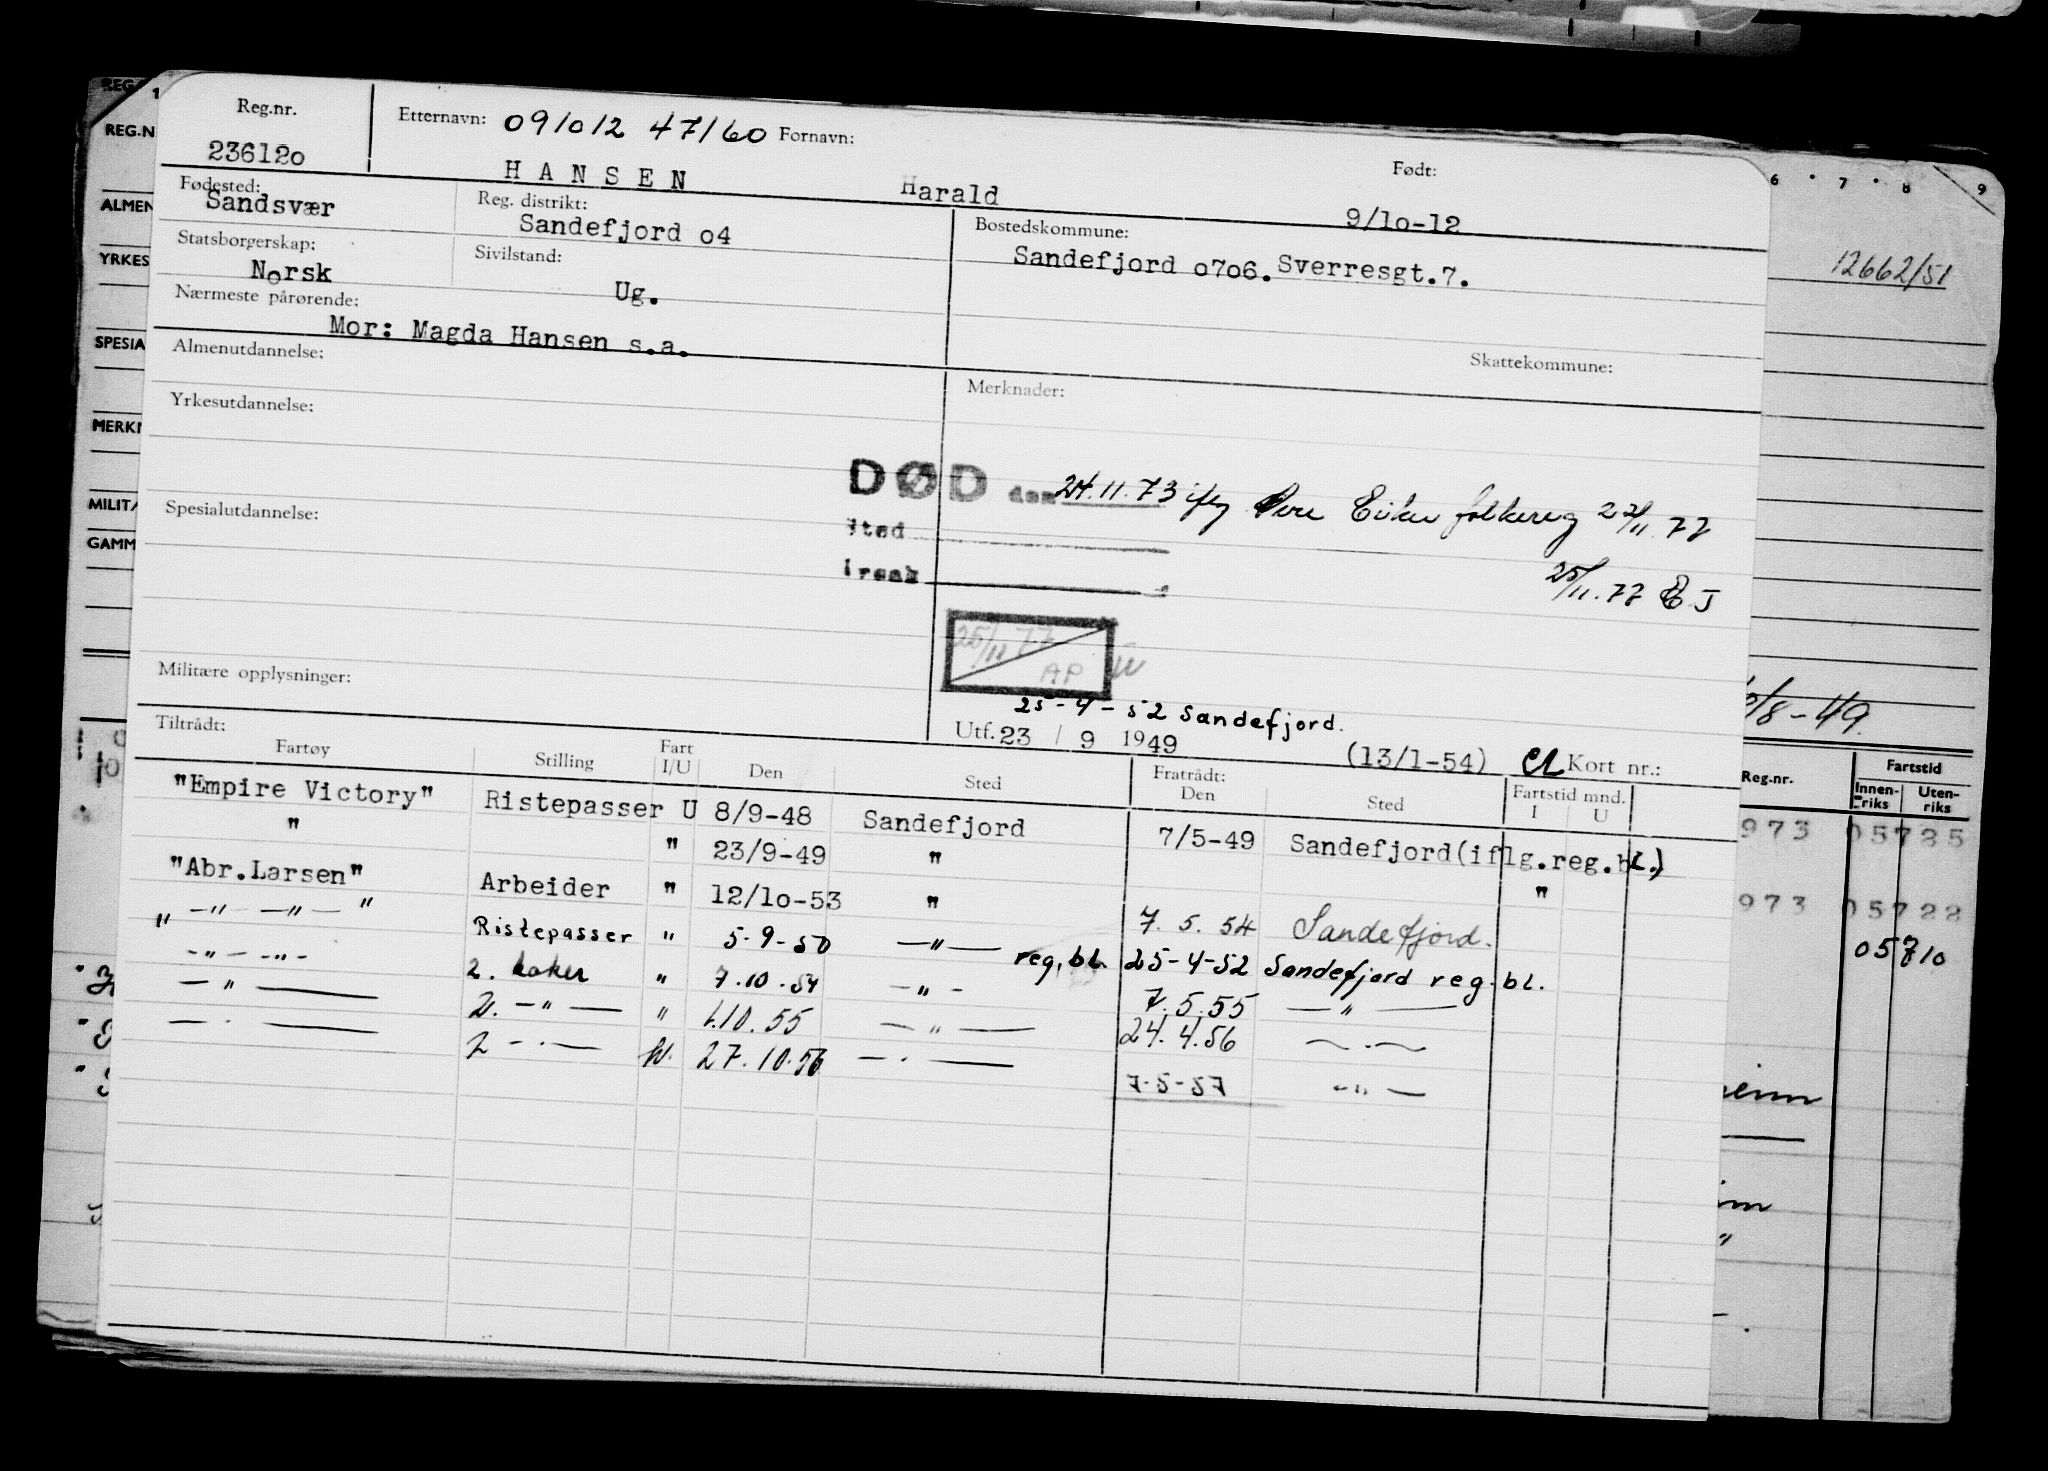 Reg.nr.
236120
Etternavn: 091012 47160 Fornavn:
HANSEN Harald
Født:
9/10-12
Fødested:
Sandsvær
Reg. distrikt:
Sandefjord 04
Bostedskommune:
Sandefjord 0706. Sverresgt.7.
Statsborgerskap:
Norsk
Sivilstand:
Ug.
Nærmeste pårørende:
Mor: Magda Hansen s.a.
Skattekommune:
Almenutdannelse:
Merknader:
Yrkesutdannelse:
DØD den 24.11.73 iflg Øvre Eiker folkereg 22/11.77
Sted
25/11.77 E.J
Spesialutdannelse:
25/11 77
AP
Militære opplysninger:
25-4-52 Sandefjord.
Utf. 23 / 9 1949 (13/1-54) Kort nr.:
Tiltrådt:
Fratrådt:
Fartøy Stilling Fart I/U Den Sted Den Sted Fartstid mnd. I U
"Empire Victory" Ristepasser U 8/9-48 Sandefjord 7/5-49 Sandefjord(iflg.reg.bl.)
" " 23/9-49 " "
"Abr.Larsen" Arbeider " 12/10-53 " 7. 5. 54 Sandefjord.
" -"- -"- " Ristepasser " 5-9-50 -"- reg.bl. 25-4-52 Sandefjord reg.bl.
-"- -"- 2. koker " 7.10.54 -"- 7.5.55 -"-
-"- 2. -"- " 1.10.55 -"- 24.4.56 -"-
-"- 2 -"- U. 27.10.56 -"- 7-5-57 -"-
REG.N
ALMEN
YRKES
SPESIA
MERKN
MILITÆ
GAMM
6 7 8 9
12662/51
/8-49
Reg.nr. Fartstid
Innenriks Utenriks
973 05725
973 05722
05710